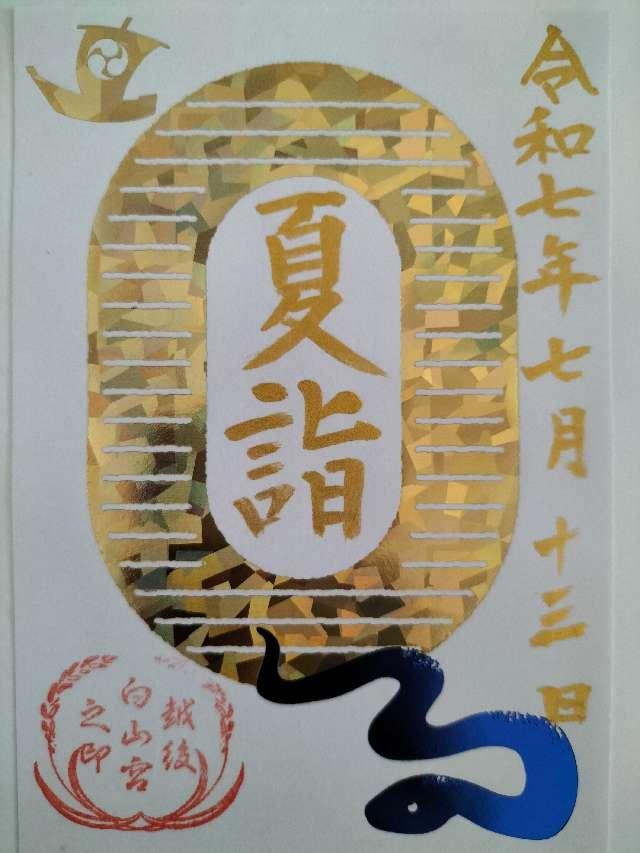 令和七年七月十三日
夏詣
越後
白山宮
之印